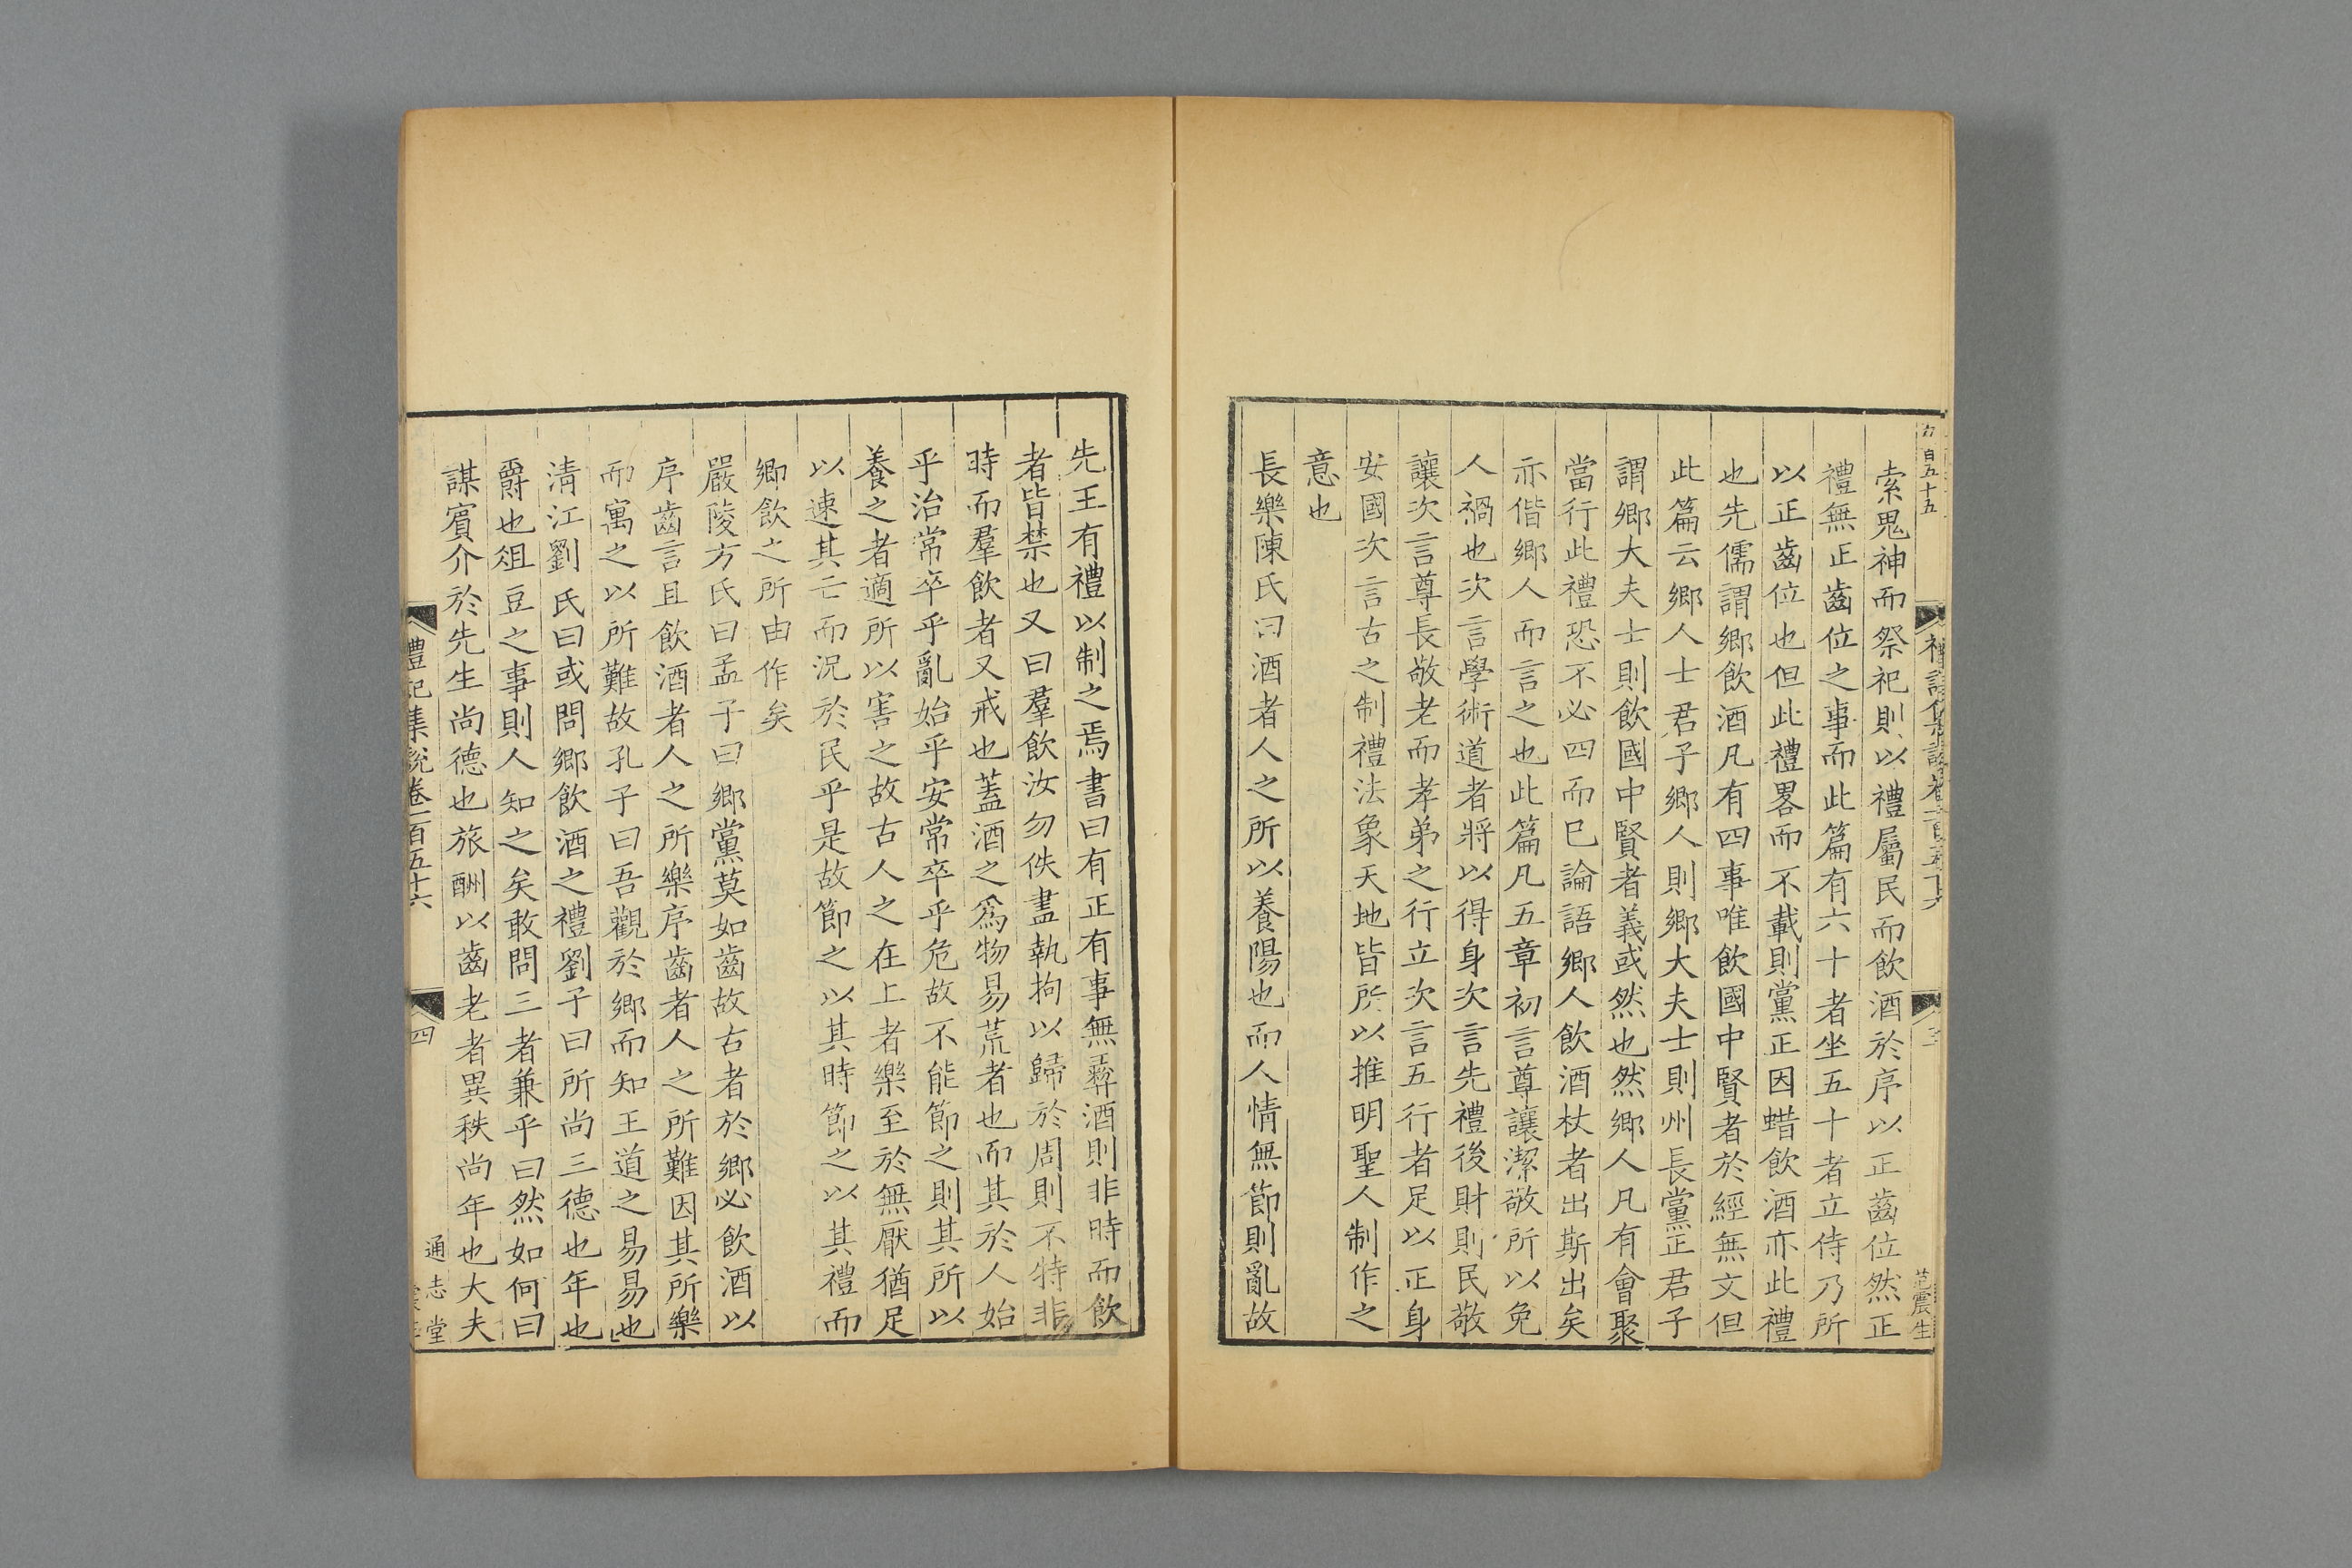 索鬼神而祭祀則以禮屬民而飲酒於序以正齒位然正
禮無正齒位之事而此篇有六十者坐五十者立侍乃所
以正齒位也但此禮畧而不載則黨正因蜡飲酒亦此禮
也先儒謂鄉飲酒凡有四事唯飲國中賢者於經無文但
此篇云鄉人士君子鄉人則鄉大夫士則州長黨正君子
謂鄉大夫士則飲國中賢者義或然也然鄉人凡有會聚
當行此禮恐不必四而已論語鄉人飲酒杖者出斯出矣
亦偕鄉人而言之也此篇凡五章初言尊讓潔敬所以免
人禍也次言學術道者將以得身次言先禮後財則民敬
讓次言尊長敬老而孝弟之行立次言五行者足以正身
安國次言古之制禮法象天地皆所以推明聖人制作之
意也
長樂陳氏曰酒者人之所以養陽也而人情無節則亂故
范震生
先王有禮以制之焉書曰有正有事無彞酒則非時而飲
者皆禁也又曰羣飲汝勿佚盡執拘以歸於周則不特非
時而羣飲者又戒也蓋酒之爲物易荒者也而其於人始
乎治常卒乎亂始乎安常卒乎危故不能節之則其所以
養之者適所以害之故古人之在上者樂至於無厭猶足
以速其亡而況於民乎是故節之以其時節之以其禮而
鄉飲之所由作矣
嚴陵方氏曰孟子曰鄉黨莫如齒故古者於鄉必飲酒以
序齒言且飲酒者人之所樂序齒者人之所難因其所樂
而寓之以所難故孔子曰吾觀於鄉而知王道之易易也
清江劉氏曰或問鄉飲酒之禮劉子曰所尚三德也年也
爵也俎豆之事則人知之矣敢問三者兼乎曰然如何曰
謀賓介於先生尚德也旅酬以齒老者異秩尚年也大夫
禮記集説卷一百五十六
四
通志堂